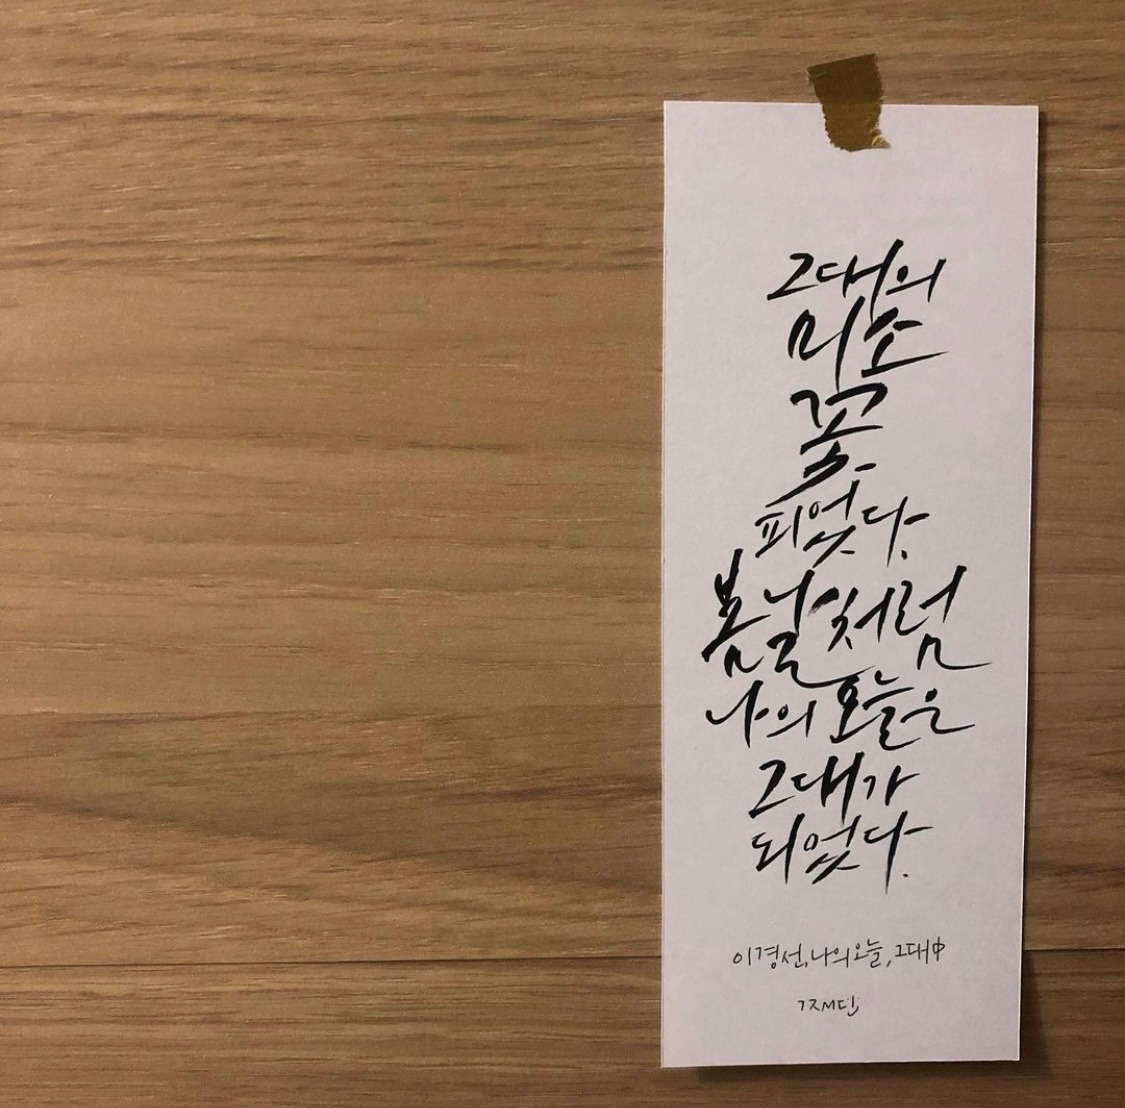 그대의
미소
꽃
피었다.
봄날처럼
나의 오늘은
그대가
되었다.
이경선, 나의 오늘, 그대 中